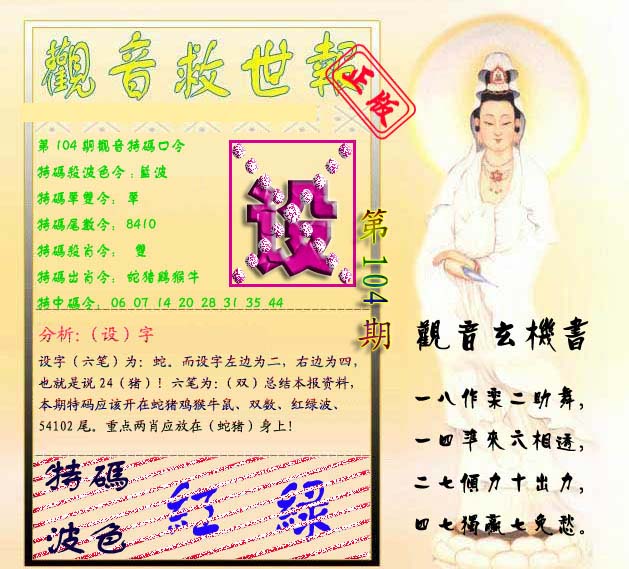 觀音救世報
正版
第104期觀音特碼口令
特碼殺波色令:藍波
特碼單雙令: 單
特碼尾數令: 8410
特碼殺肖令: 雙
特碼出肖令: 蛇猪鷄猴牛
特中碼令: 06 07 14 20 28 31 35 44
设
第104期
分析:(设)字
设字(六笔)为: 蛇。而设字左边为二,右边为四,
也就是说24(猪)!六笔为:(双)总结本报资料,
本期特码应该开在蛇猪鸡猴牛鼠、双数、红绿波、
54102尾。重点两肖应放在(蛇猪)身上!
特碼
波色
紅 綠
觀音玄機書
一八作栾二助舞,
一四準來六相透,
二七傾力十出力,
四七獨贏七免愁。